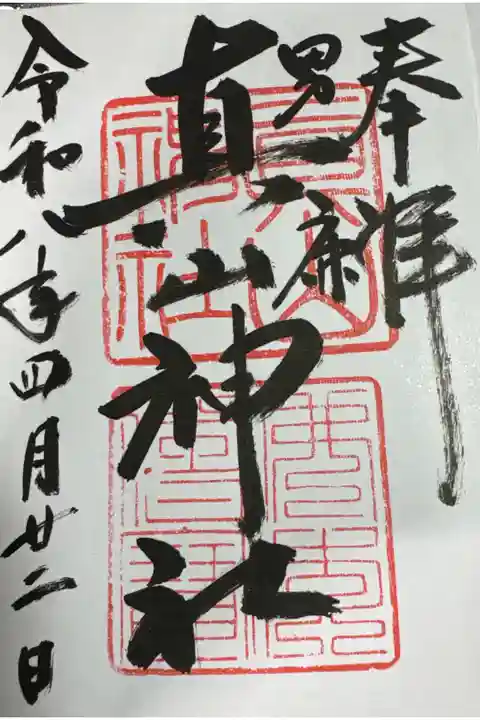 奉拝
男鹿
真山神社
令和年四月廿二日
真山
神社